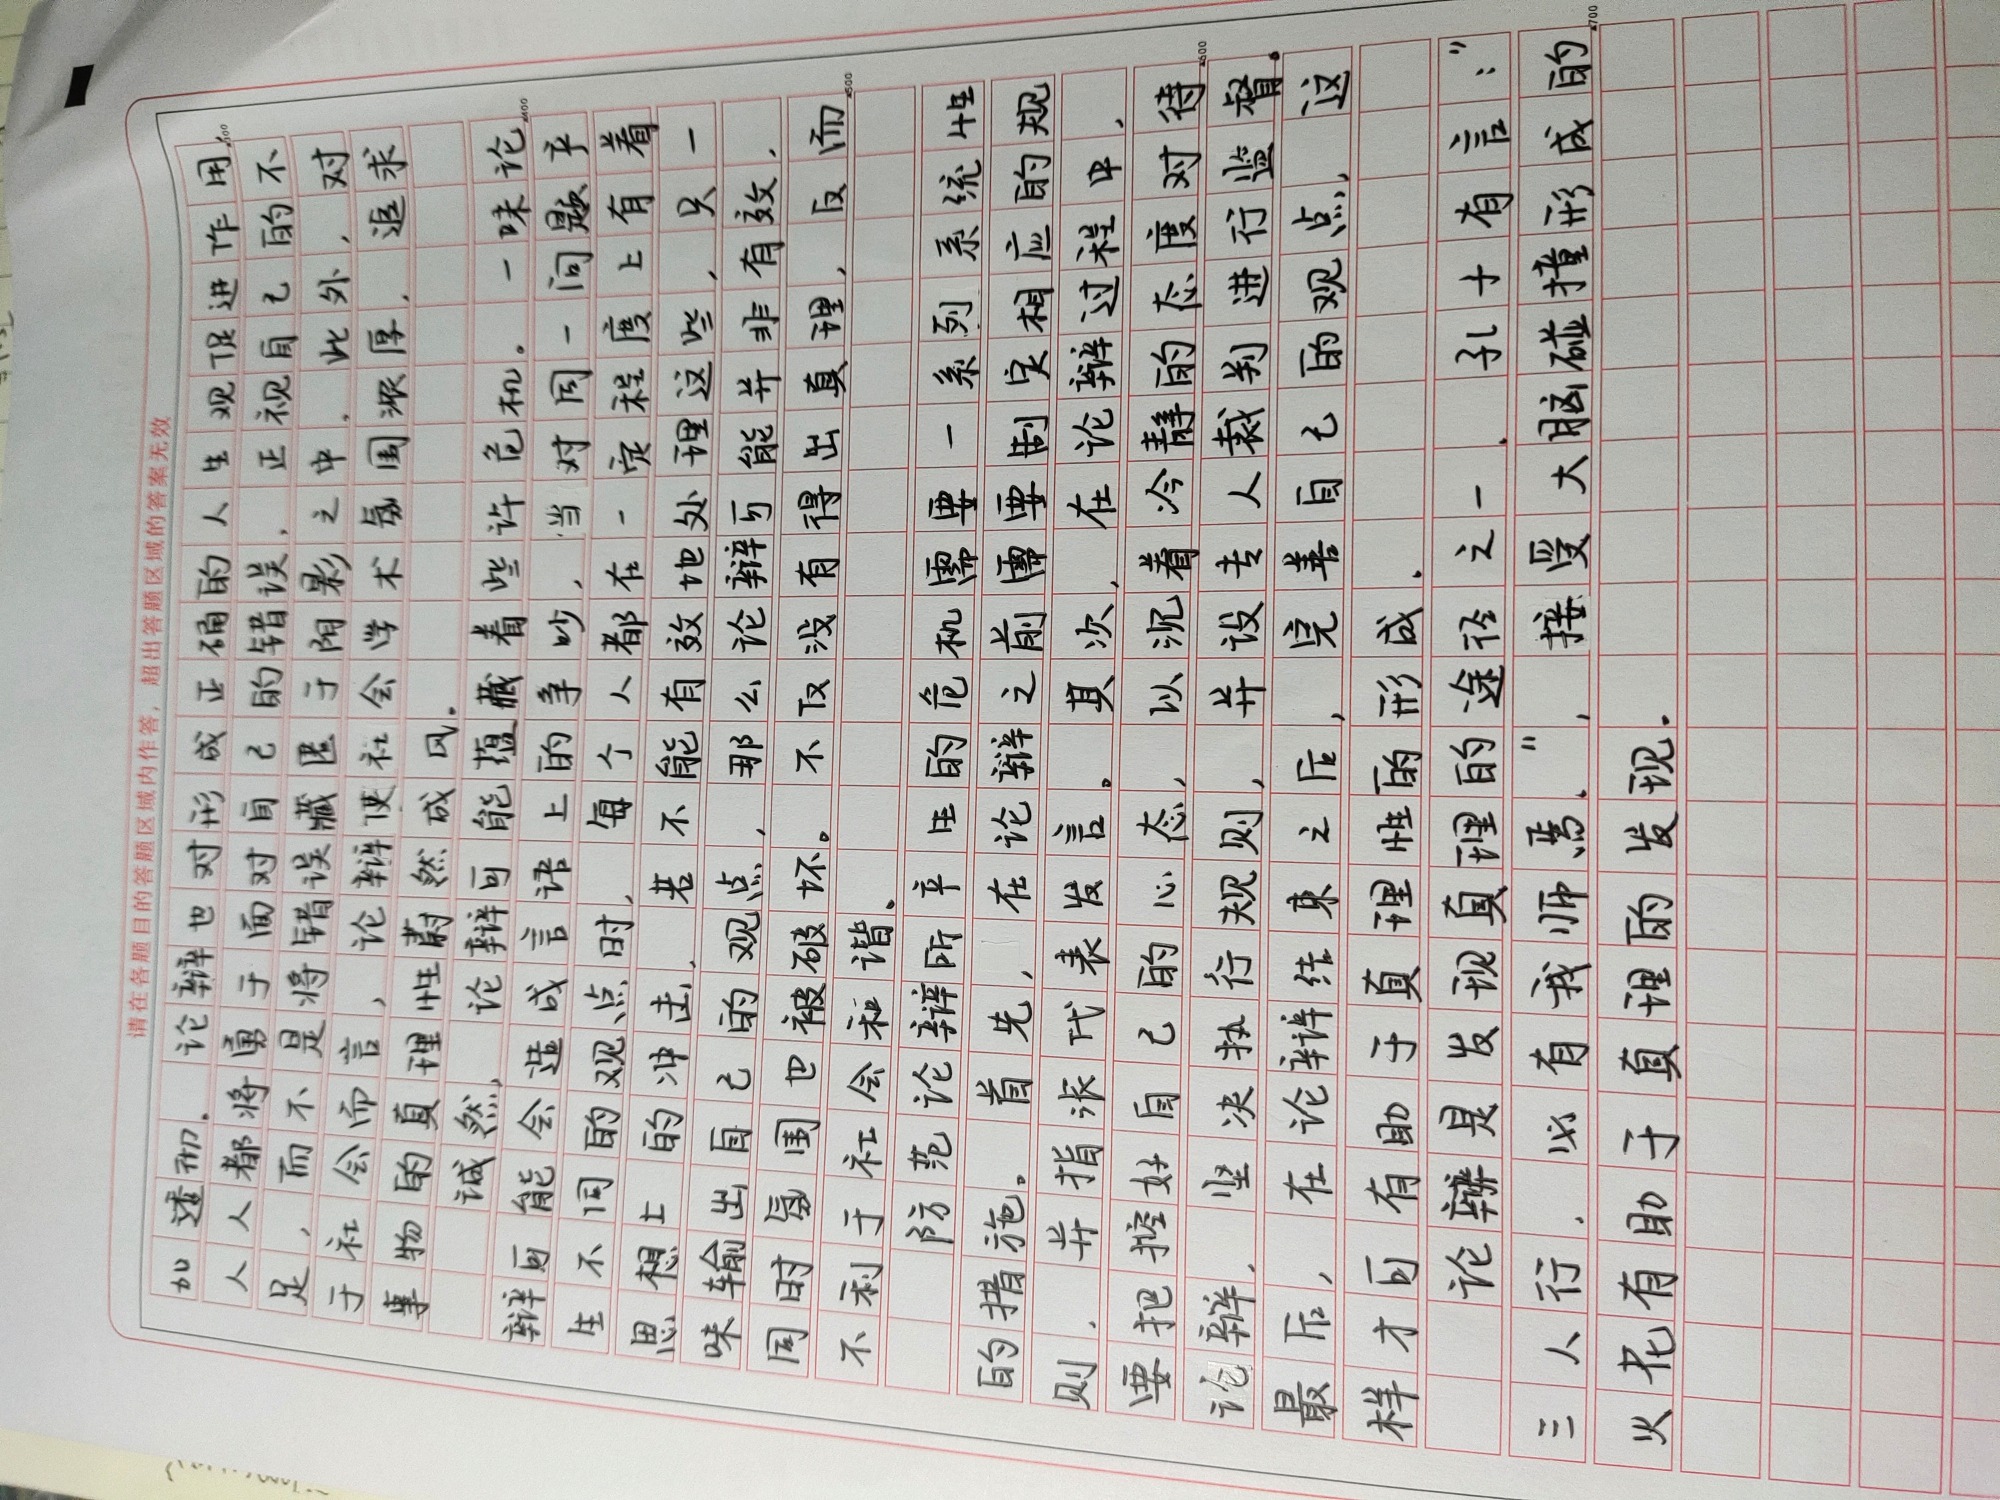 请在各题目的答题区域内作答，超出答题区域的答案无效
加透彻。论辩也对形成正确的人生观促进作用.
人人都将勇于面对自己的错误，正视自己的不
足，而不是将错误藏匿于阴影之中。此外，对
于社会而言，论辩使社会学术氛围浓厚，追求
事物的真理性蔚然成风。
诚然，论辩可能蕴藏着些许危机。一味论
辩可能会造成言语上的争吵，当对同一问题产
生不同的观点时，每个人都在一定程度上有着
思想上的冲击，若不能有效地处理这些，只一
味输出自己的观点，那么论辩可能并非有效，
同时氛围也被破坏。不仅没有得出真理，反而
不利于社会和谐。
防范论辩所产生的危机需要一系列系统性
的措施。首先，在论辩之前需要制定相应的规
则，并指派代表发言。其次，在论辩过程中，
要把控好自己的心态，以沉着冷静的态度对待
论辩，坚决执行规则，并设专人裁判进行监督。
最后，在论辩结束之后，完善自己的观点，这
样才可有助于真理性的形成。
论辩是发现真理的途径之一。孔子有言：“
三人行，必有我师焉。”，接受大脑碰撞形成的
火花有助于真理的发现。
▲300
▲400
▲500
▲600
▲700